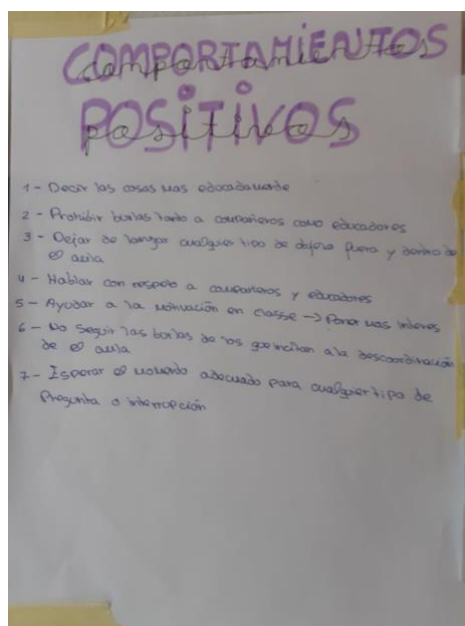 COMPORTAMIENTOS
comportamientos
POSITIVOS
positivos
1 - Decir las cosas mas educadamente
2 - Prohibir burlas tanto a compañeros como educadores
3 - Dejar de lanzar cualquier tipo de objeto fuera y dentro de
el aula
4 - Hablar con respeto a compañeros y educadores
5 - Ayudar a la motivación en classe → Poner mas interes
6 - No seguir las burlas de los que incitan a la descoordinación
de el aula
7 - Esperar el momento adecuado para cualquier tipo de
Pregunta o interrupción